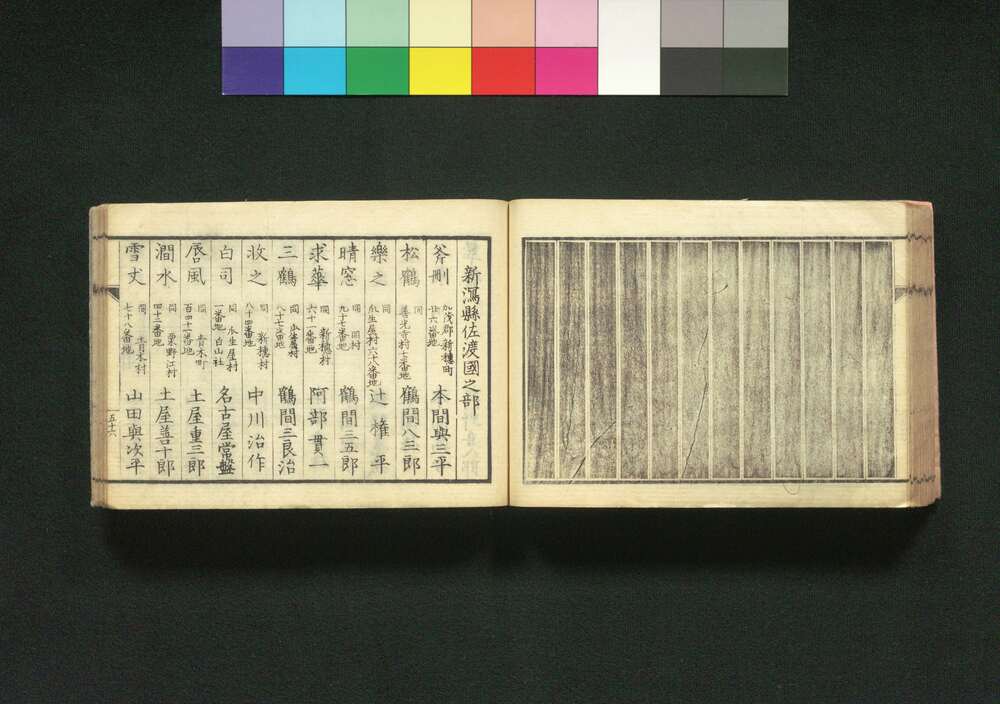 新潟縣佐渡國之部
斧刪 加茂郡新穗町廿六番地 本間與三平
松鶴 同 善光寺村七番地 鶴間八三郎
樂之 同 瓜生屋村六十八番地 辻權平
晴窓 同 同村九十七番地 鶴間三五郎
求藥 同 新穗村六十一番地 阿部貫一
三鶴 同 瓜生屋村八十七番地 鶴間三良治
牧之 同 新穗村八十四番地 中川治作
白司 同 瓜生屋村一番地 白山社 名古屋常盤
唇風 同 青木町百四十一番地 土屋重三郎
澗水 同 栗野江村四十三番地 土屋善十郎
雪丈 同 青木村七十八番地 山田與次平
五十六